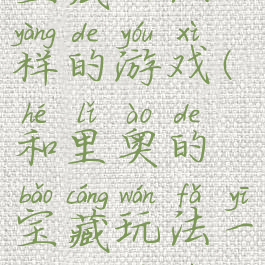 yàng de yóu xì
样的游戏(
hé lǐ ào de
和里奥的
bǎo cáng wán fǎ yī
宝藏玩法一